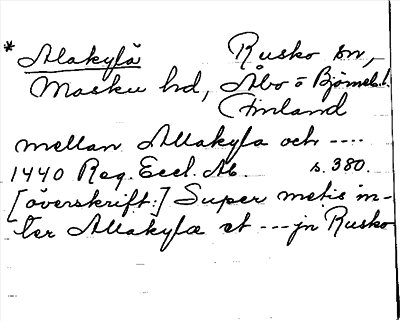 * Alakylä Rusko sn,
Masku hd, Åbo o Björneb. l.
Finland
mellan Allakyla och ----
1440 Reg. Eccl. Ab. s. 380.
[överskrift:] Super metis in-
ter Allakylæ et --- jn Rusko